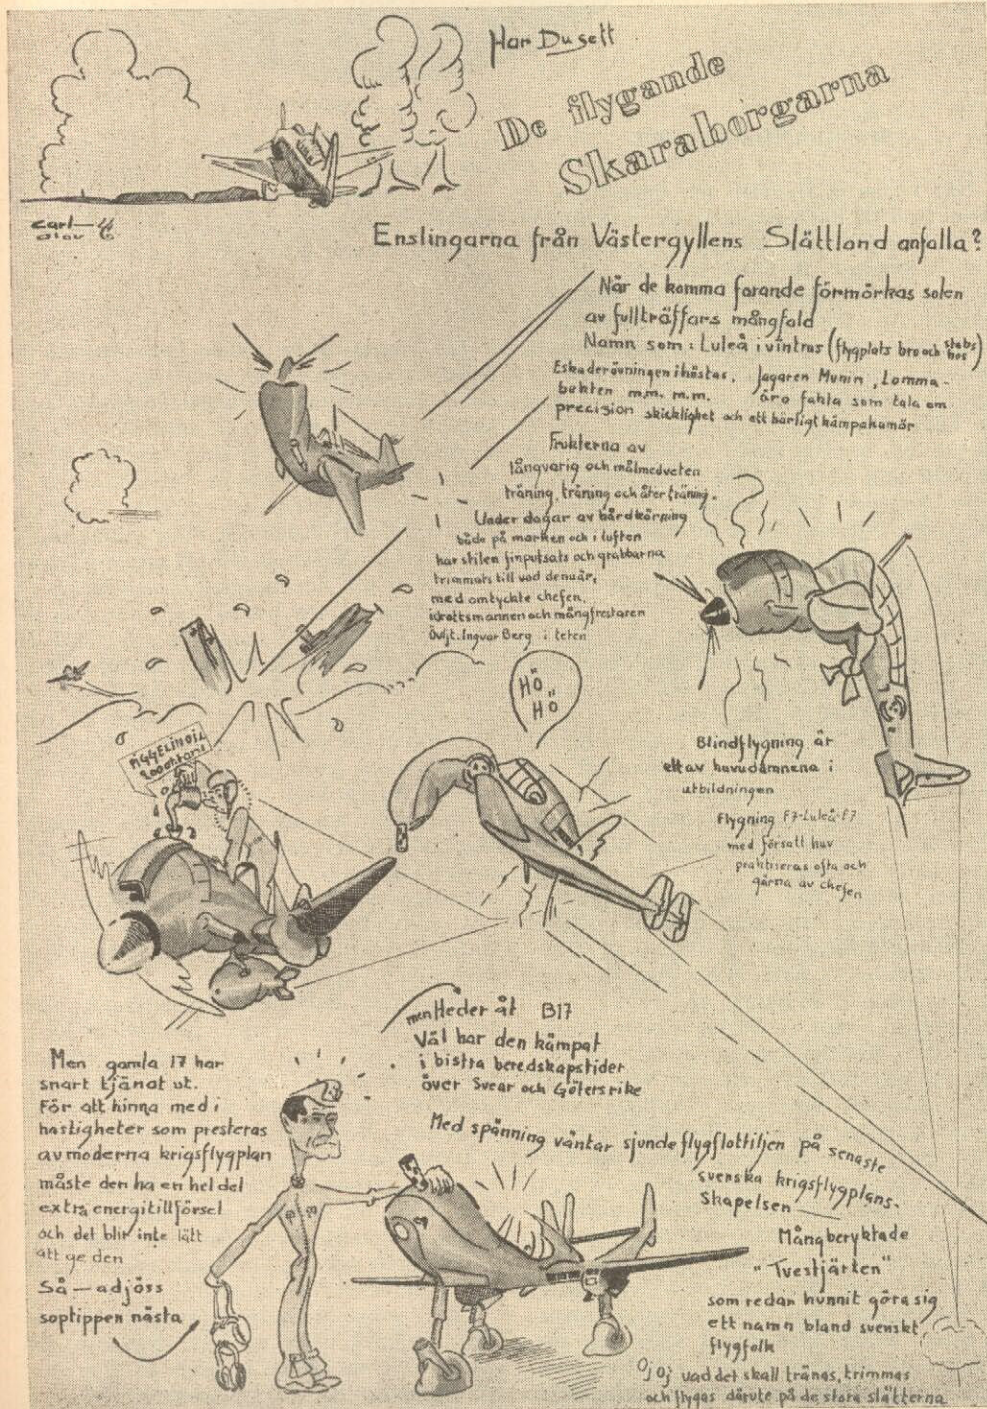 Har Du sett
De flygande
Skaraborgarna
Carl-
Olov
Enslingarna från Västergyllens Slättland anfalla?
När de komma farande förmörkas solen
av fullträffars mångfald
Namn som: Luleå i vintras (flygplats bro och stabs
hos)
Eskaderövningen i höstas, Jagaren Munin, Lomma-
bukten m.m. m.m. äro fakta som tala om
precision skicklighet och ett härligt kämpahumör
Frukterna av
långvarig och målmedveten
träning, träning och åter träning.
Under dagar av hårdkörning
både på marken och i luften
har stilen finputsats och grabbarna
trimmats till vad den är,
med omtyckte chefen,
idrottsmannen och mångfrestaren
Övljt. Ingvar Berg i teten
HÖ
HÖ
PIGGELINOIL
2000 oktan!
Blindflygning är
ett av huvudämnena i
utbildningen
flygning F7-Luleå-F7
med försatt huv
praktiseras ofta och
gärna av chefen
men Heder åt B17
Väl har den kämpat
i bistra beredskapstider
över Svear och Göters rike
Men gamla 17 har
snart tjänat ut.
För att hinna med i
hastigheter som presteras
av moderna krigsflygplan
måste den ha en hel del
extra energitillförsel
och det blir inte lätt
att ge den
Så — adjöss
soptippen nästa
Med spänning väntar sjunde flygflottiljen på senaste
svenska krigsflygplans-
skapelsen
Mångberyktade
"Tvestjärten"
som redan hunnit göra sig
ett namn bland svenskt
flygfolk
Oj Oj vad det skall tränas, trimmas
och flygas därute på de stora slätterna